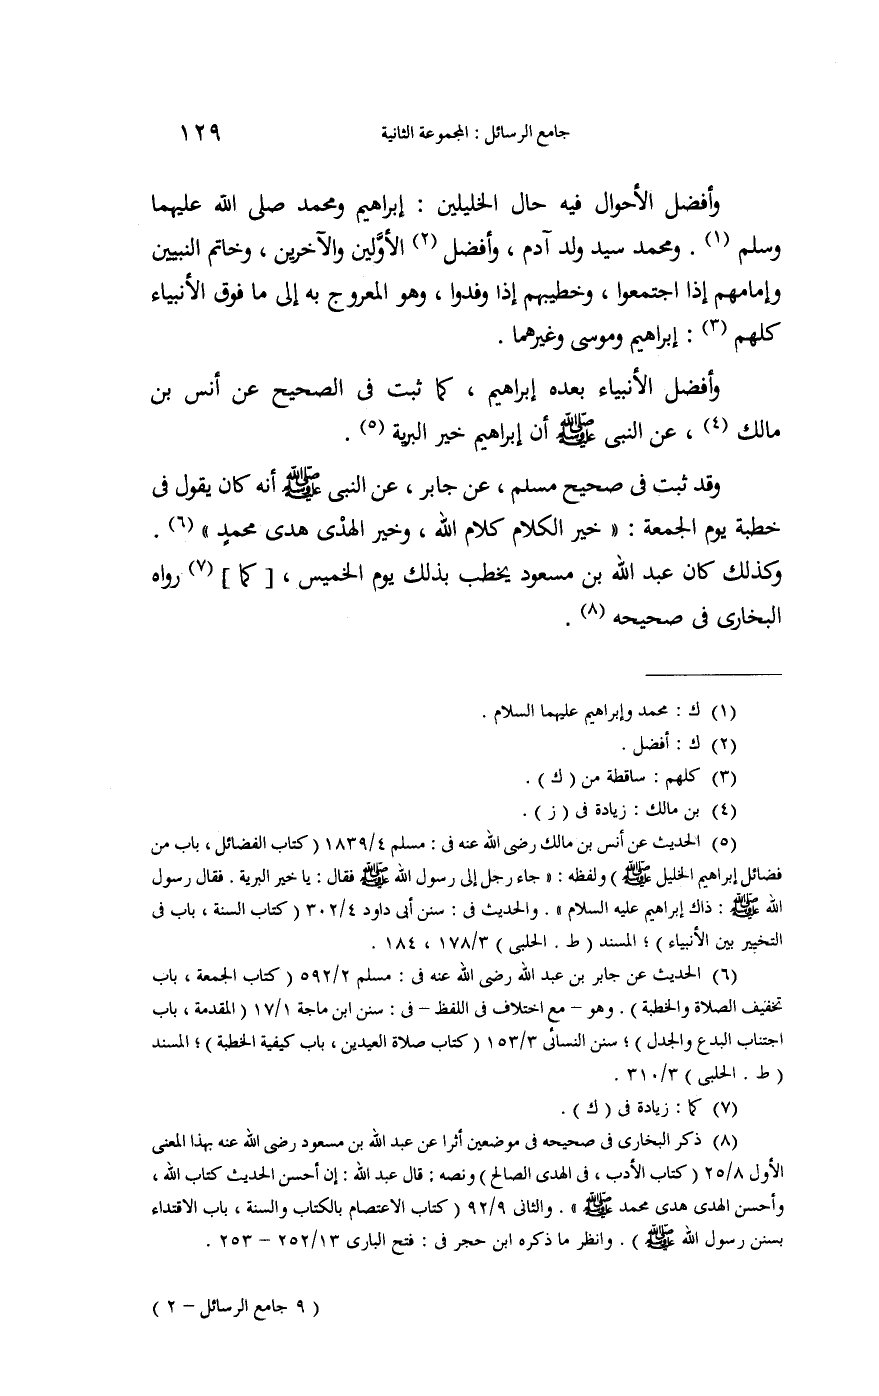 جامع الرسائل : المجموعة الثانية ١٢٩
وأفضل الأحوال فيه حال الخليلين : إبراهيم ومحمد صلى الله عليهما
وسلم (١) . ومحمد سيد ولد آدم ، وأفضل (٢) الأوَّلين والآخرين ، وخاتم النبيين
وإمامهم إذا اجتمعوا ، وخطيبهم إذا وفدوا ، وهو المعروج به إلى ما فوق الأنبياء
كلهم (٣) : إبراهيم وموسى وغيرهما .
وأفضل الأنبياء بعده إبراهيم ، كما ثبت فى الصحيح عن أنس بن
مالك (٤) ، عن النبى ﷺ أن إبراهيم خير البرية (٥) .
وقد ثبت فى صحيح مسلم ، عن جابر ، عن النبى ﷺ أنه كان يقول فى
خطبة يوم الجمعة : « خير الكلام كلام الله ، وخير الهدْى هدى محمدٍ » (٦) .
وكذلك كان عبد الله بن مسعود يخطب بذلك يوم الخميس ، [ كما ] (٧) رواه
البخارى فى صحيحه (٨) .
(١) ك : محمد وإبراهيم عليهما السلام .
(٢) ك : أفضل .
(٣) كلهم : ساقطة من ( ك ) .
(٤) بن مالك : زيادة فى ( ز ) .
(٥) الحديث عن أنس بن مالك رضى الله عنه فى : مسلم ١٨٣٩/٤ ( كتاب الفضائل ، باب من
فضائل إبراهيم الخليل ﷺ ) ولفظه : « جاء رجل إلى رسول الله ﷺ فقال : يا خير البرية . فقال رسول
الله ﷺ : ذاك إبراهيم عليه السلام » . والحديث فى : سنن أبى داود ٣٠٢/٤ ( كتاب السنة ، باب فى
التخيير بين الأنبياء ) ؛ المسند ( ط . الحلبى ) ١٧٨/٣ ، ١٨٤ .
(٦) الحديث عن جابر بن عبد الله رضى الله عنه فى : مسلم ٥٩٢/٢ ( كتاب الجمعة ، باب
تخفيف الصلاة والخطبة ) . وهو – مع اختلاف فى اللفظ – فى : سنن ابن ماجة ١٧/١ ( المقدمة ، باب
اجتناب البدع والجدل ) ؛ سنن النسائى ١٥٣/٣ ( كتاب صلاة العيدين ، باب كيفية الخطبة ) ؛ المسند
( ط . الحلبى ) ٣١٠/٣ .
(٧) كما : زيادة فى ( ك ) .
(٨) ذكر البخارى فى صحيحه فى موضعين أثرا عن عبد الله بن مسعود رضى الله عنه بهذا المعنى
الأول ٢٥/٨ ( كتاب الأدب ، فى الهدى الصالح ) ونصه : قال عبد الله : إن أحسن الحديث كتاب الله ،
وأحسن الهدى هدى محمد ﷺ » . والثانى ٩٢/٩ ( كتاب الاعتصام بالكتاب والسنة ، باب الاقتداء
بسنن رسول الله ﷺ ) . وانظر ما ذكره ابن حجر فى : فتح البارى ٢٥٢/١٣ – ٢٥٣ .
( ٩ جامع الرسائل – ٢ )